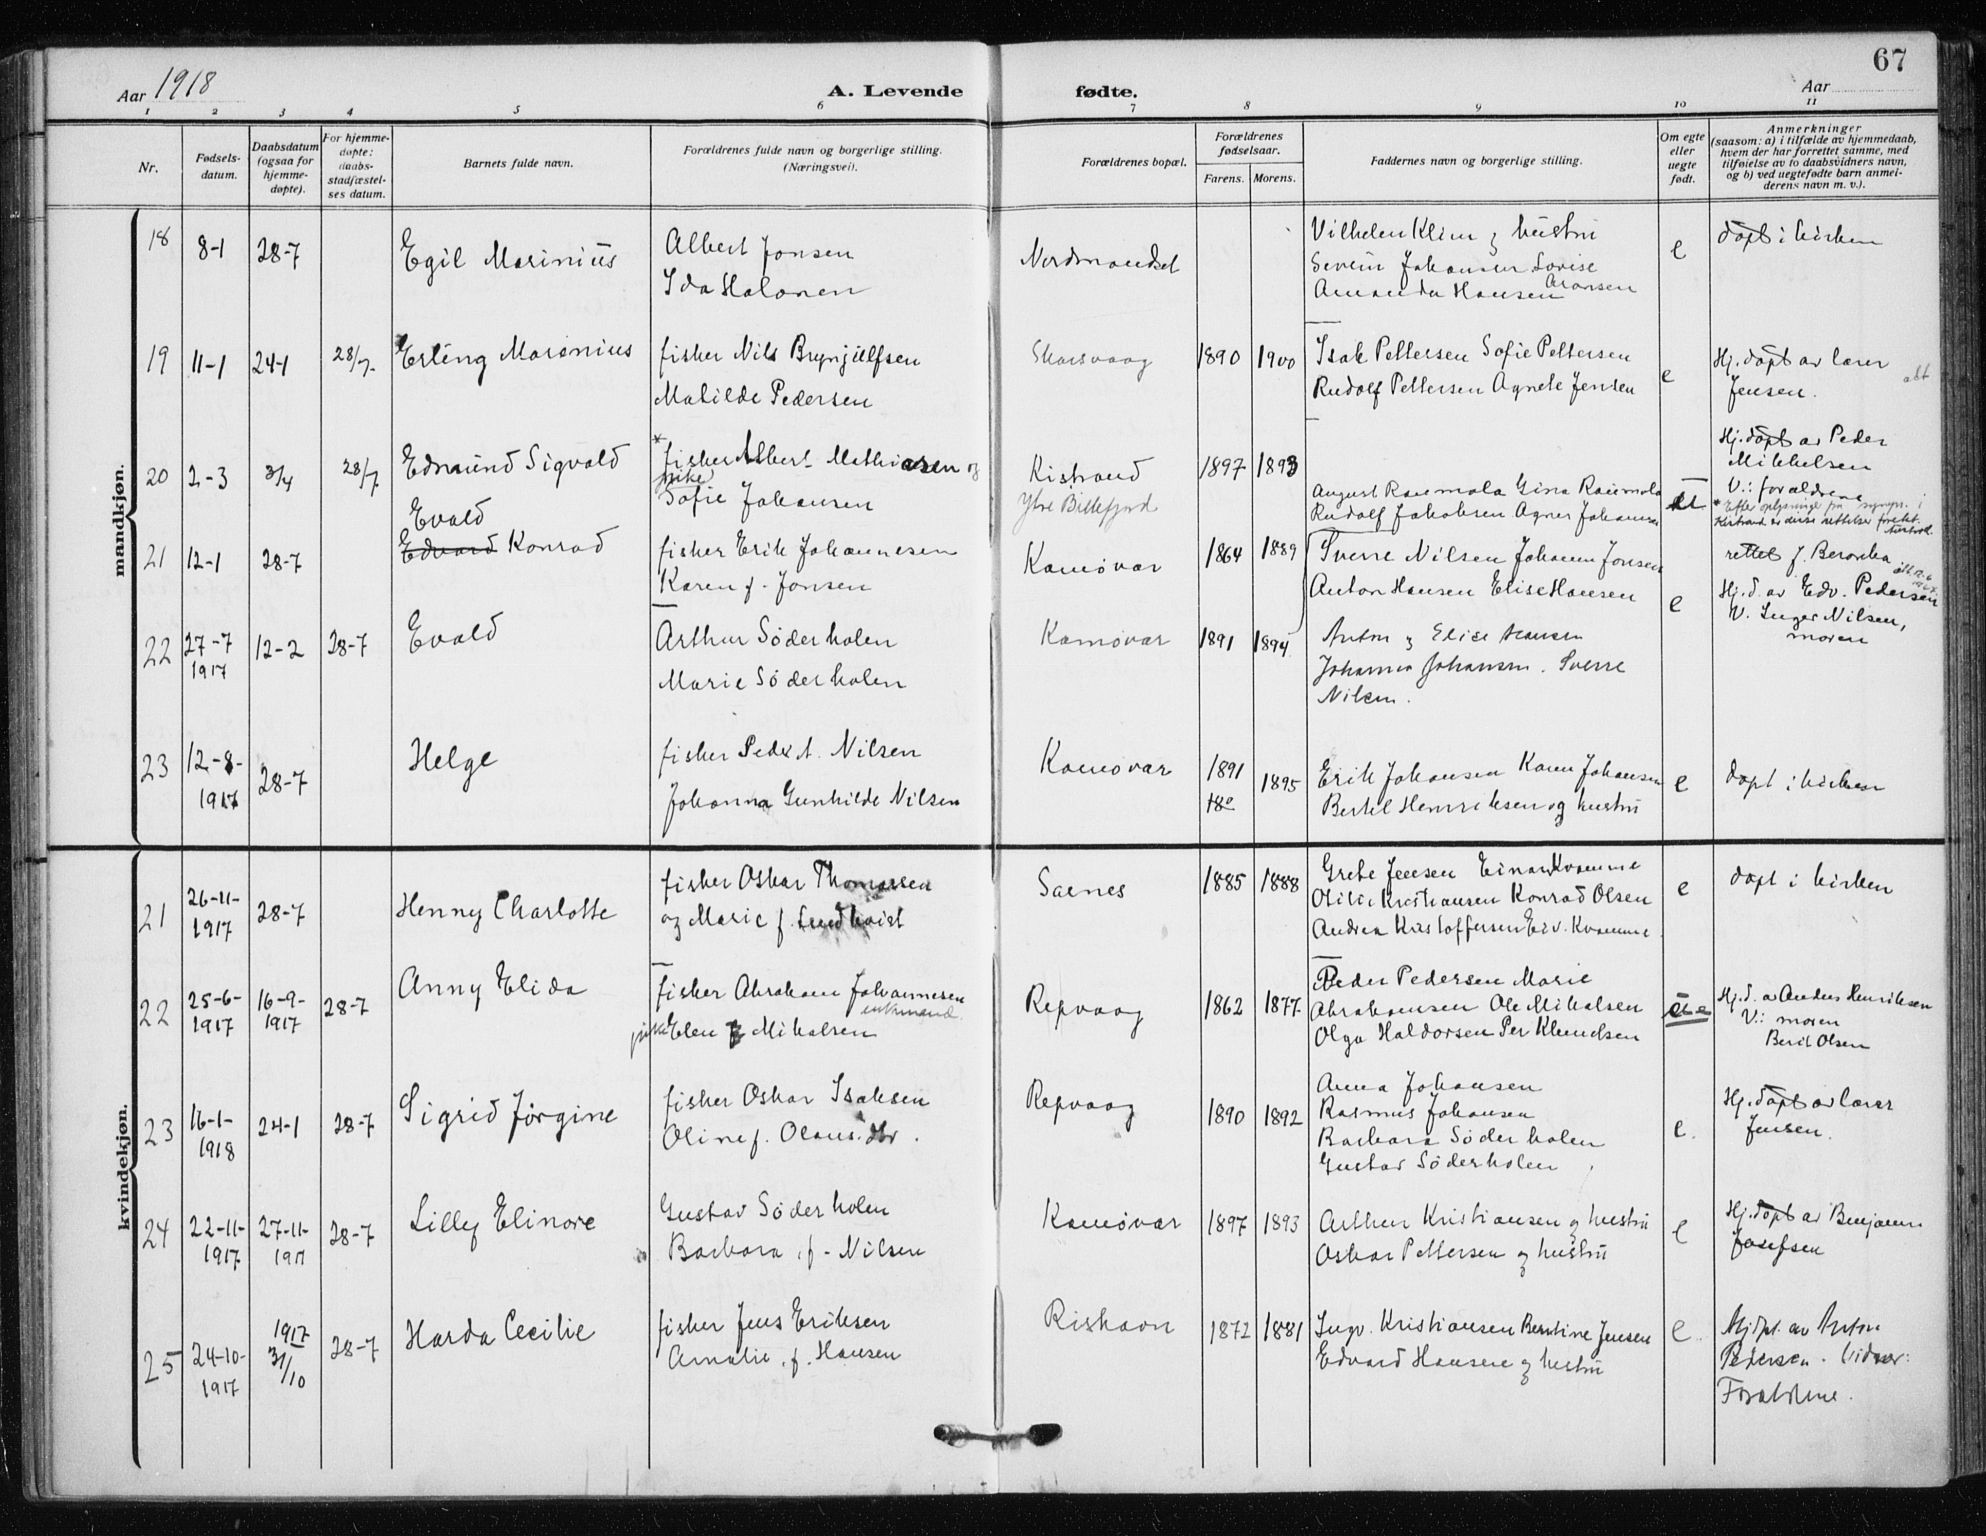 67
Aar 1918
A. Levende fødte.
Aar
1 2 3 4 5 6 7 8 9 10 11
Nr.
Fødsels-
datum.
Daabsdatum
(ogsaa for
hjemme-
døpte).
For hjemme-
døpte:
daabs-
stadfæstel-
ses datum.
Barnets fulde navn.
Forældrenes fulde navn og borgerlige stilling.
(Næringsvei).
Forældrenes bopæl.
Forældrenes
fødselsaar.
Farens. Morens.
Faddernes navn og borgerlige stilling.
Om egte
eller
uegte
født.
Anmerkninger
(saasom: a) i tilfælde av hjemmedaab,
hvem der har forrettet samme, med
tilføielse av to daabsvidners navn,
og b) ved uegtefødte barn anmel-
derens navn m. v.).
mandkjøn.
18 8-1 28-7
Egil Marinius
Albert Jonsen
Ida Halonen
Nordmandset
Vilhelm Klim og hustru
Severin Johansen Lovise
Aronsen
Amanda Hansen
e
døpt i kirken
19 11-1 24-1 28/7.
Erling Marinius
fisker Nils Brynjulfsen
Matilde Pedersen
Skarsvaag
1890 1900
Isak Pettersen Sofie Pettersen
Rudolf Pettersen Agnete Jensen
e
Hj. døpt av lærer
Jensen.
20 2-3 3/4 28/7
Edmund Sigvald
* fisker Albert Mathiasen og
pike
Sofie Johansen
Kistrand
Ytre Billefjord
1897 1893
August Raumola Gina Raumola
Rudolf Jakobsen Agnes Johansen
Hj. døpt av Peder
Mikkelsen
V.: forældrene
* Efter oplysninge fra sognepr. i
Kistrand er disse rettelser foretat.
21 12-1 28-7
Evald
Edvard Konrad
fisker Erik Johannesen
Karen f. Jonsen
Kamøvar
1864 1889
Sverre Nilsen Johanne Jonsen
Anton Hansen Elise Hansen
e
rettet f.
22 27-7
1917
12-2 28-7
Evald
Arthur Söderholen
Marie Söderholen
Kamøvar
1891 1894
Anton og Elise Hansen
Johanna Johansen. Sverre
Nilsen.
Hj. d. av Edv. Pedersen
V. Inger Nilsen,
moren
23 12-8-
1917
28-7
Helge
fisker Peder A. Nilsen
Johanna Gunhilde Nilsen
Kamøvar
1891
18
1895
Erik Johansen Karen Johansen
Bertel Henriksen og hustru
e
døpt i kirken
kvindekjøn.
21 26-11-
1917
28-7
Henny Charlotte
fisker Oskar Thomassen
og Marie f. Lundkvist
Sarnes
1885 1888
Grete Jensen Einar Kvamme
Otilie Kristiansen Konrad Olsen
Andrea Kristoffersen Eiv. Kvamme
e
døpt i kirken
22 25-6-
1917
16-9-
1917
28-7
Anny Elida
fisker Abraham Johannesen
enkemand
pike Elen f Mikalsen
Repvaag
1862 1877
Peder Pedersen Marie
Abrahamsen Ole Mikalsen
Olga Haldorsen Per Knudsen
Hj. d. av Anders Henriksen
V.: moren
Berit Olsen
23 16-1-
1918
24-1 28-7
Sigrid Jørgine
fisker Oskar Isaksen
Oline f. Olaus.
Repvaag
1890 1892
Anna Johansen
Rasmus Johansen
Barbara Söderholen
Gustav Söderholen
e.
Hj. døpt av lærer
Jensen.
24 22-11-
1917
27-11-
1917
28-7
Lilly Elinore
Gustav Söderholen
Barbara, f. Nilsen
Kamøvar
1897 1893
Arthur Kristiansen og hustru
Oskar Pettersen og hustru
e
Hj. døpt av Benjamin
Josefsen
25 24-10-
1917
1917
31/10
28-7
Harda Cecilie
fisker Jens Eriksen
Amalie, f. Hansen
Rishavn
1872 1881
Ingv. Kristiansen Berntine Jensen
Edvard Hansen og hustru
e.
Hj. dpt. av Anton
Pedersen. Vidner:
Forældrene.